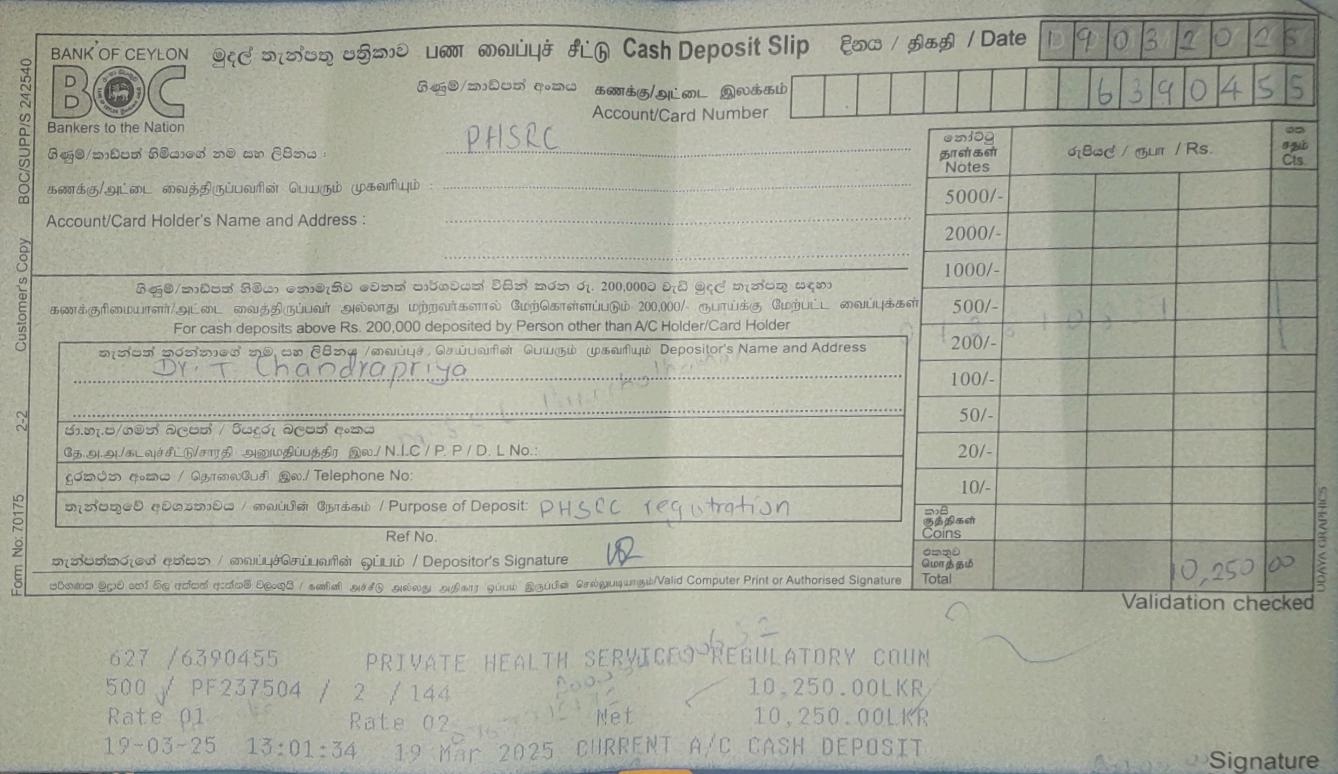 BANK OF CEYLON
BOC
Bankers to the Nation
මුදල් තැන්පතු පත්‍රිකාව பண வைப்புச் சீட்டு Cash Deposit Slip
දිනය / திகதி / Date 19032025
ගිණුම්/කාඩ්පත් අංකය கணக்கு/அட்டை இலக்கம்
Account/Card Number 6390455
ගිණුම්/කාඩ්පත් හිමියාගේ නම සහ ලිපිනය : PHSRC
கணக்கு/அட்டை வைத்திருப்பவரின் பெயரும் முகவரியும் :
Account/Card Holder's Name and Address :
ගිණුම්/කාඩ්පත් හිමියා නොමැතිව වෙනත් පාර්ශවයක් විසින් කරන රු. 200,000ට වැඩි මුදල් තැන්පතු සඳහා
கணக்குரிமையாளர்/அட்டை வைத்திருப்பவர் அல்லாது மற்றவர்களால் மேற்கொள்ளப்படும் 200,000/- ரூபாய்க்கு மேற்பட்ட வைப்புக்கள்
For cash deposits above Rs. 200,000 deposited by Person other than A/C Holder/Card Holder
තැන්පත් කරන්නාගේ නම සහ ලිපිනය /வைப்புச் செய்பவரின் பெயரும் முகவரியும் Depositor's Name and Address
Dr. T Chandrapriya
ජා.හැ.ප/ගමන් බලපත් / රියදුරු බලපත් අංකය
தே.அ.அ/கடவுச்சீட்டு/சாரதி அனுமதிப்பத்திர இல./ N.I.C / P. P / D. L No.:
දුරකථන අංකය / தொலைபேசி இல./ Telephone No:
තැන්පතුවේ අවශ්‍යතාවය / வைப்பின் நோக்கம் / Purpose of Deposit: PHSRC regutration
Ref No.
තැන්පත්කරුගේ අත්සන / வைப்புச்செய்பவரின் ஒப்பம் / Depositor's Signature
/Valid Computer Print or Authorised Signature
නෝට්ටු
தாள்கள்
Notes
රුපියල් / ரூபா / Rs.
ශත
சதம்
Cts.
5000/-
2000/-
1000/-
500/-
200/-
100/-
50/-
20/-
10/-
කාසි
குத்திகள்
Coins
එකතුව
மொத்தம்
Total 10,250 00
Validation checked
627 /6390455 PRIVATE HEALTH SERVICES REGULATORY COUN
500 / PF237504 / 2 /144 10,250.00LKR
Rate 01 Rate 02 Net 10,250.00LKR
19-03-25 13:01:34 19 Mar 2025 CURRENT A/C CASH DEPOSIT
Signature
Form No: 70175 2-2 Customer's Copy BOC/SUPP/S 242540
UDAYA GRAPHICS